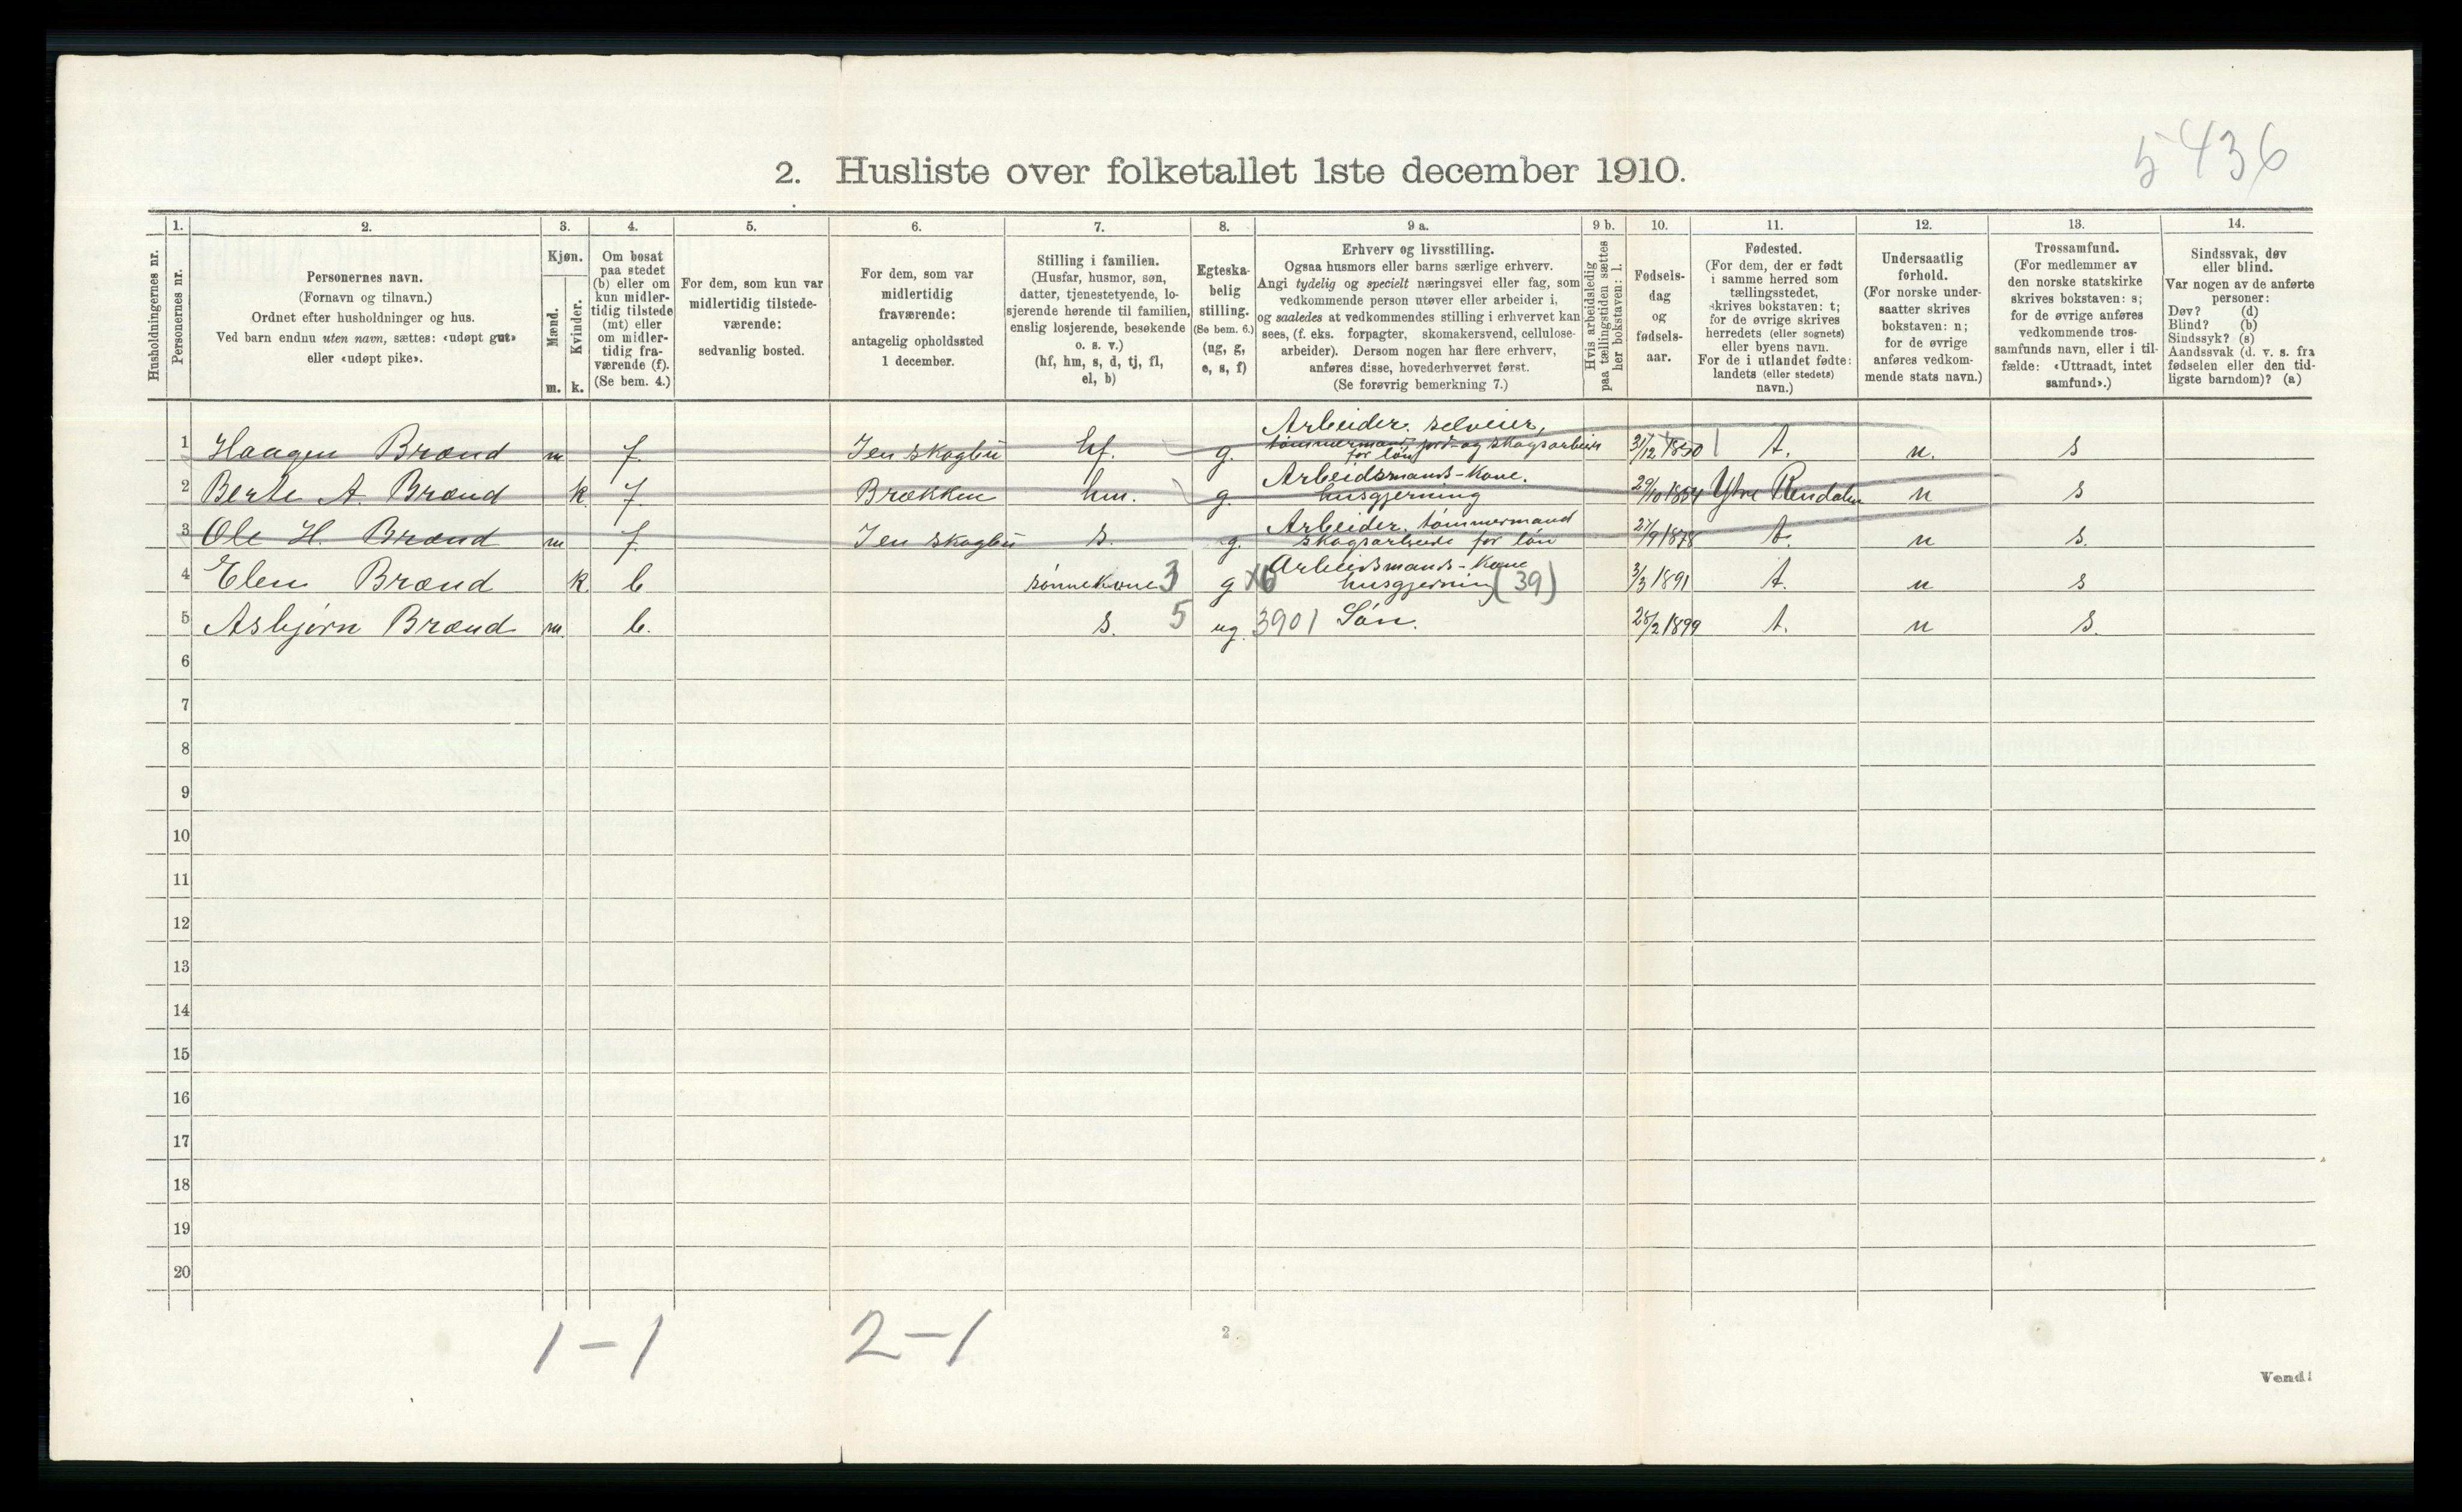 5436
2. Husliste over folketallet 1ste december 1910.
Husholdningernes nr.
1. Personernes nr.
2. Personernes navn.
(Fornavn og tilnavn.)
Ordnet efter husholdninger og hus.
Ved barn endnu uten navn, sættes: «udøpt gut»
eller «udøpt pike».
3. Kjøn.
Mænd. m.
Kvinder. k.
4. Om bosat
paa stedet
(b) eller om
kun midler-
tidig tilstede
(mt) eller
om midler-
tidig fra-
værende (f).
(Se bem. 4.)
5. For dem, som kun var
midlertidig tilstede-
værende:
sedvanlig bosted.
6. For dem, som var
midlertidig
fraværende:
antagelig opholdssted
1 december.
7. Stilling i familien.
(Husfar, husmor, søn,
datter, tjenestetyende, lo-
sjerende hørende til familien,
enslig losjerende, besøkende
o. s. v.)
(hf, hm, s, d, tj, fl,
el, b)
8. Egteska-
belig
stilling.
(Se bem. 6.)
(ug, g,
e, s, f)
9 a. Erhverv og livsstilling.
Ogsaa husmors eller barns særlige erhverv.
Angi tydelig og specielt næringsvei eller fag, som
vedkommende person utøver eller arbeider i,
og saaledes at vedkommendes stilling i erhvervet kan
sees, (f. eks. forpagter, skomakersvend, cellulose-
arbeider). Dersom nogen har flere erhverv,
anføres disse, hovederhvervet først.
(Se forøvrig bemerkning 7.)
9 b. Hvis arbeidsledig
paa tællingstiden sættes
her bokstaven: l.
10. Fødsels-
dag
og
fødsels-
aar.
11. Fødested.
(For dem, der er født
i samme herred som
tællingsstedet,
skrives bokstaven: t;
for de øvrige skrives
herredets (eller sognets)
eller byens navn.
For de i utlandet fødte:
landets (eller stedets)
navn.)
12. Undersaatlig
forhold.
(For norske under-
saatter skrives
bokstaven: n;
for de øvrige
anføres vedkom-
mende stats navn.)
13. Trossamfund.
(For medlemmer av
den norske statskirke
skrives bokstaven: s;
for de øvrige anføres
vedkommende tros-
samfunds navn, eller i til-
fælde: «Uttraadt, intet
samfund».)
14. Sindssvak, døv
eller blind.
Var nogen av de anførte
personer:
Døv? (d)
Blind? (b)
Sindssyk? (s)
Aandssvak (d. v. s. fra
fødselen eller den tid-
ligste barndom)? (a)
1 Haagen Brænd m f. I en skogbu hf. g. Arbeider. selveier, tømmermand, jord- og skogsarbeide for løn 31/12 1850 t. n. s
2 Berte A. Brænd k f. Brækken hm. g. Arbeidsmands-kone. husgjerning 29/10 1854 Ytre Rendalen n s
3 Ole H. Brænd m f. I en skogbu s. g. Arbeider, tømmermand skogsarbeide for løn 27/9 1878 t. n s.
4 Elen Brænd k b sønnekone 3 g Arbeidsmands-kone husgjerning (39) 3/3 1891 t. n s
5 Asbjørn Brænd m. b. s. 5 ug. 3901 Søn. 28/2 1899 t. n s.
6
7
8
9
10
11
12
13
14
15
16
17
18
19
20
1-1 2-1
2
Vend!